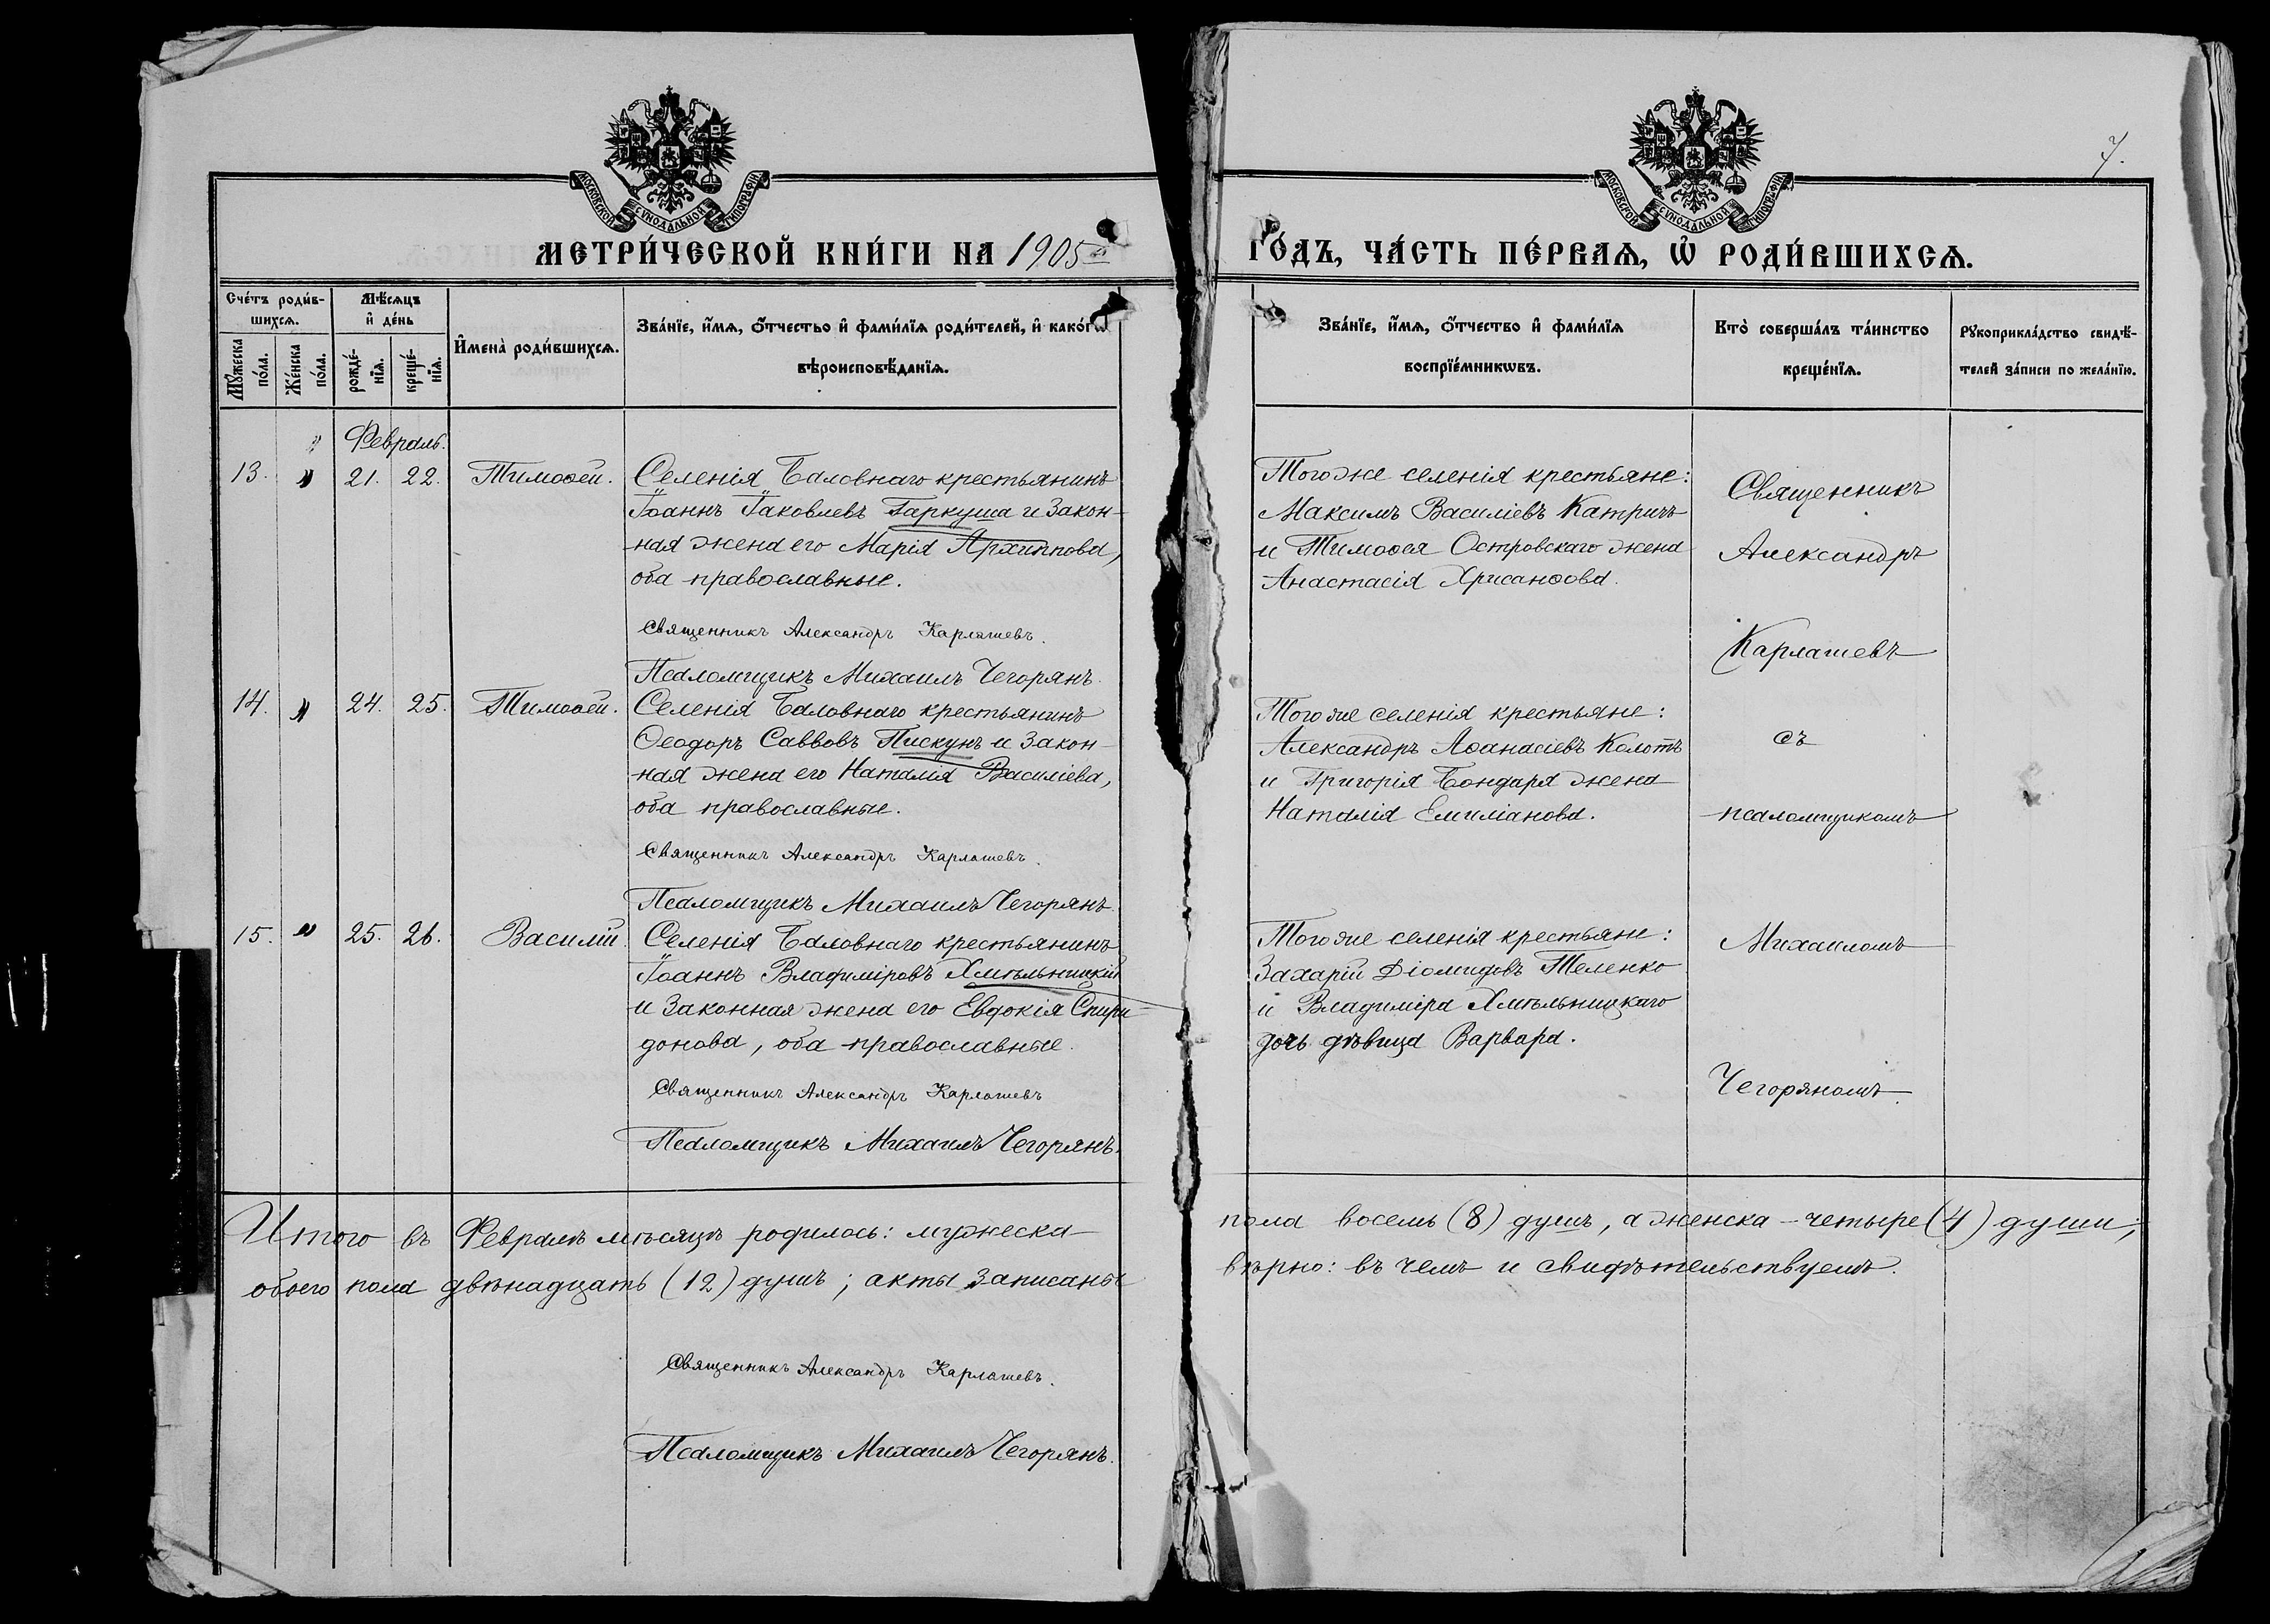 7.
МОСКОВСКОЙ СѴНОДАЛЬНОЙ ТИПОГРАФІИ
МОСКОВСКОЙ СѴНОДАЛЬНОЙ ТИПОГРАФІИ
МЕТРИ́ЧЕСКОЙ КНИ́ГИ НА 1905 ГО́ДЪ, ЧА́СТЬ ПЕ́РВАѦ, Ѡ҆ РОДИ́ВШИХСѦ.
Сче́тъ роди́в-
шихсѧ.
Мꙋ́жеска
по́ла.
Же́нска
по́ла.
Мѣ́сѧцъ
и҆ де́нь
рожде́-
нїѧ.
креще́-
нїѧ.
И҆мена̀ роди́вшихсѧ.
Зва́нїе, и҆́мѧ, ѻ҆́тчестьо и҆ фами́лїѧ роди́телей, и҆ како́гѡ
вѣроисповѣ́данїѧ.
Зва́нїе, и҆́мѧ, ѻ҆́тчество и҆ фами́лїѧ
воспрїе́мникѡвъ.
Кто̀ соверша́лъ та́инство
креще́нїѧ.
Рꙋкоприкла́дство свидѣ́-
телей за́писи по жела́нїю.
Февраль.
13. " 21. 22. Тимоѳей.
Селенія Баловнаго крестьянинъ
Іоаннъ Іаковлевъ Гаркуша и закон-
ная жена его Марія Архиппова,
оба православные.
Священникъ Александръ Карлашевъ.
Псаломщикъ Михаилъ Чегорянъ.
Тогоже селенія крестьяне:
Максимъ Василіевъ Катричъ
и Тимоѳея Островскаго жена
Анастасія Хрисанѳова.
14. " 24. 25. Тимоѳей.
Селенія Баловнаго крестьянинъ
Ѳеодоръ Саввовъ Пискунъ и закон-
ная жена его Наталія Василіева,
оба православные.
Священникъ Александръ Карлашевъ.
Псаломщикъ Михаилъ Чегорянъ.
Тогоже селенія крестьяне:
Александръ Аѳанасіевъ Колотъ
и Григорія Бондаря жена
Наталія Емиліанова.
15. " 25. 26. Василій.
Селенія Баловнаго крестьянинъ
Іоаннъ Владиміровъ Хмѣльницкій
и законная жена его Евдокія Спири-
донова, оба православные.
Священникъ Александръ Карлашевъ
Псаломщикъ Михаилъ Чегорянъ.
Тогоже селенія крестьяне:
Захарій Діомидовъ Теленко
и Владиміра Хмѣльницкаго
дочь дѣвица Варвара.
Священникъ
Александръ
Карлашевъ
съ
псаломщикомъ
Михаиломъ
Чегоряномъ.
Итого въ Февралѣ мѣсяцѣ родилось: мужеска
пола восемь (8) душъ, а женска - четыре (4) души;
обоего пола двѣнадцать (12) душъ; акты записаны
вѣрно: въ чемъ и свидѣтельствуемъ.
Священникъ Александръ Карлашевъ.
Псаломщикъ Михаилъ Чегорянъ.